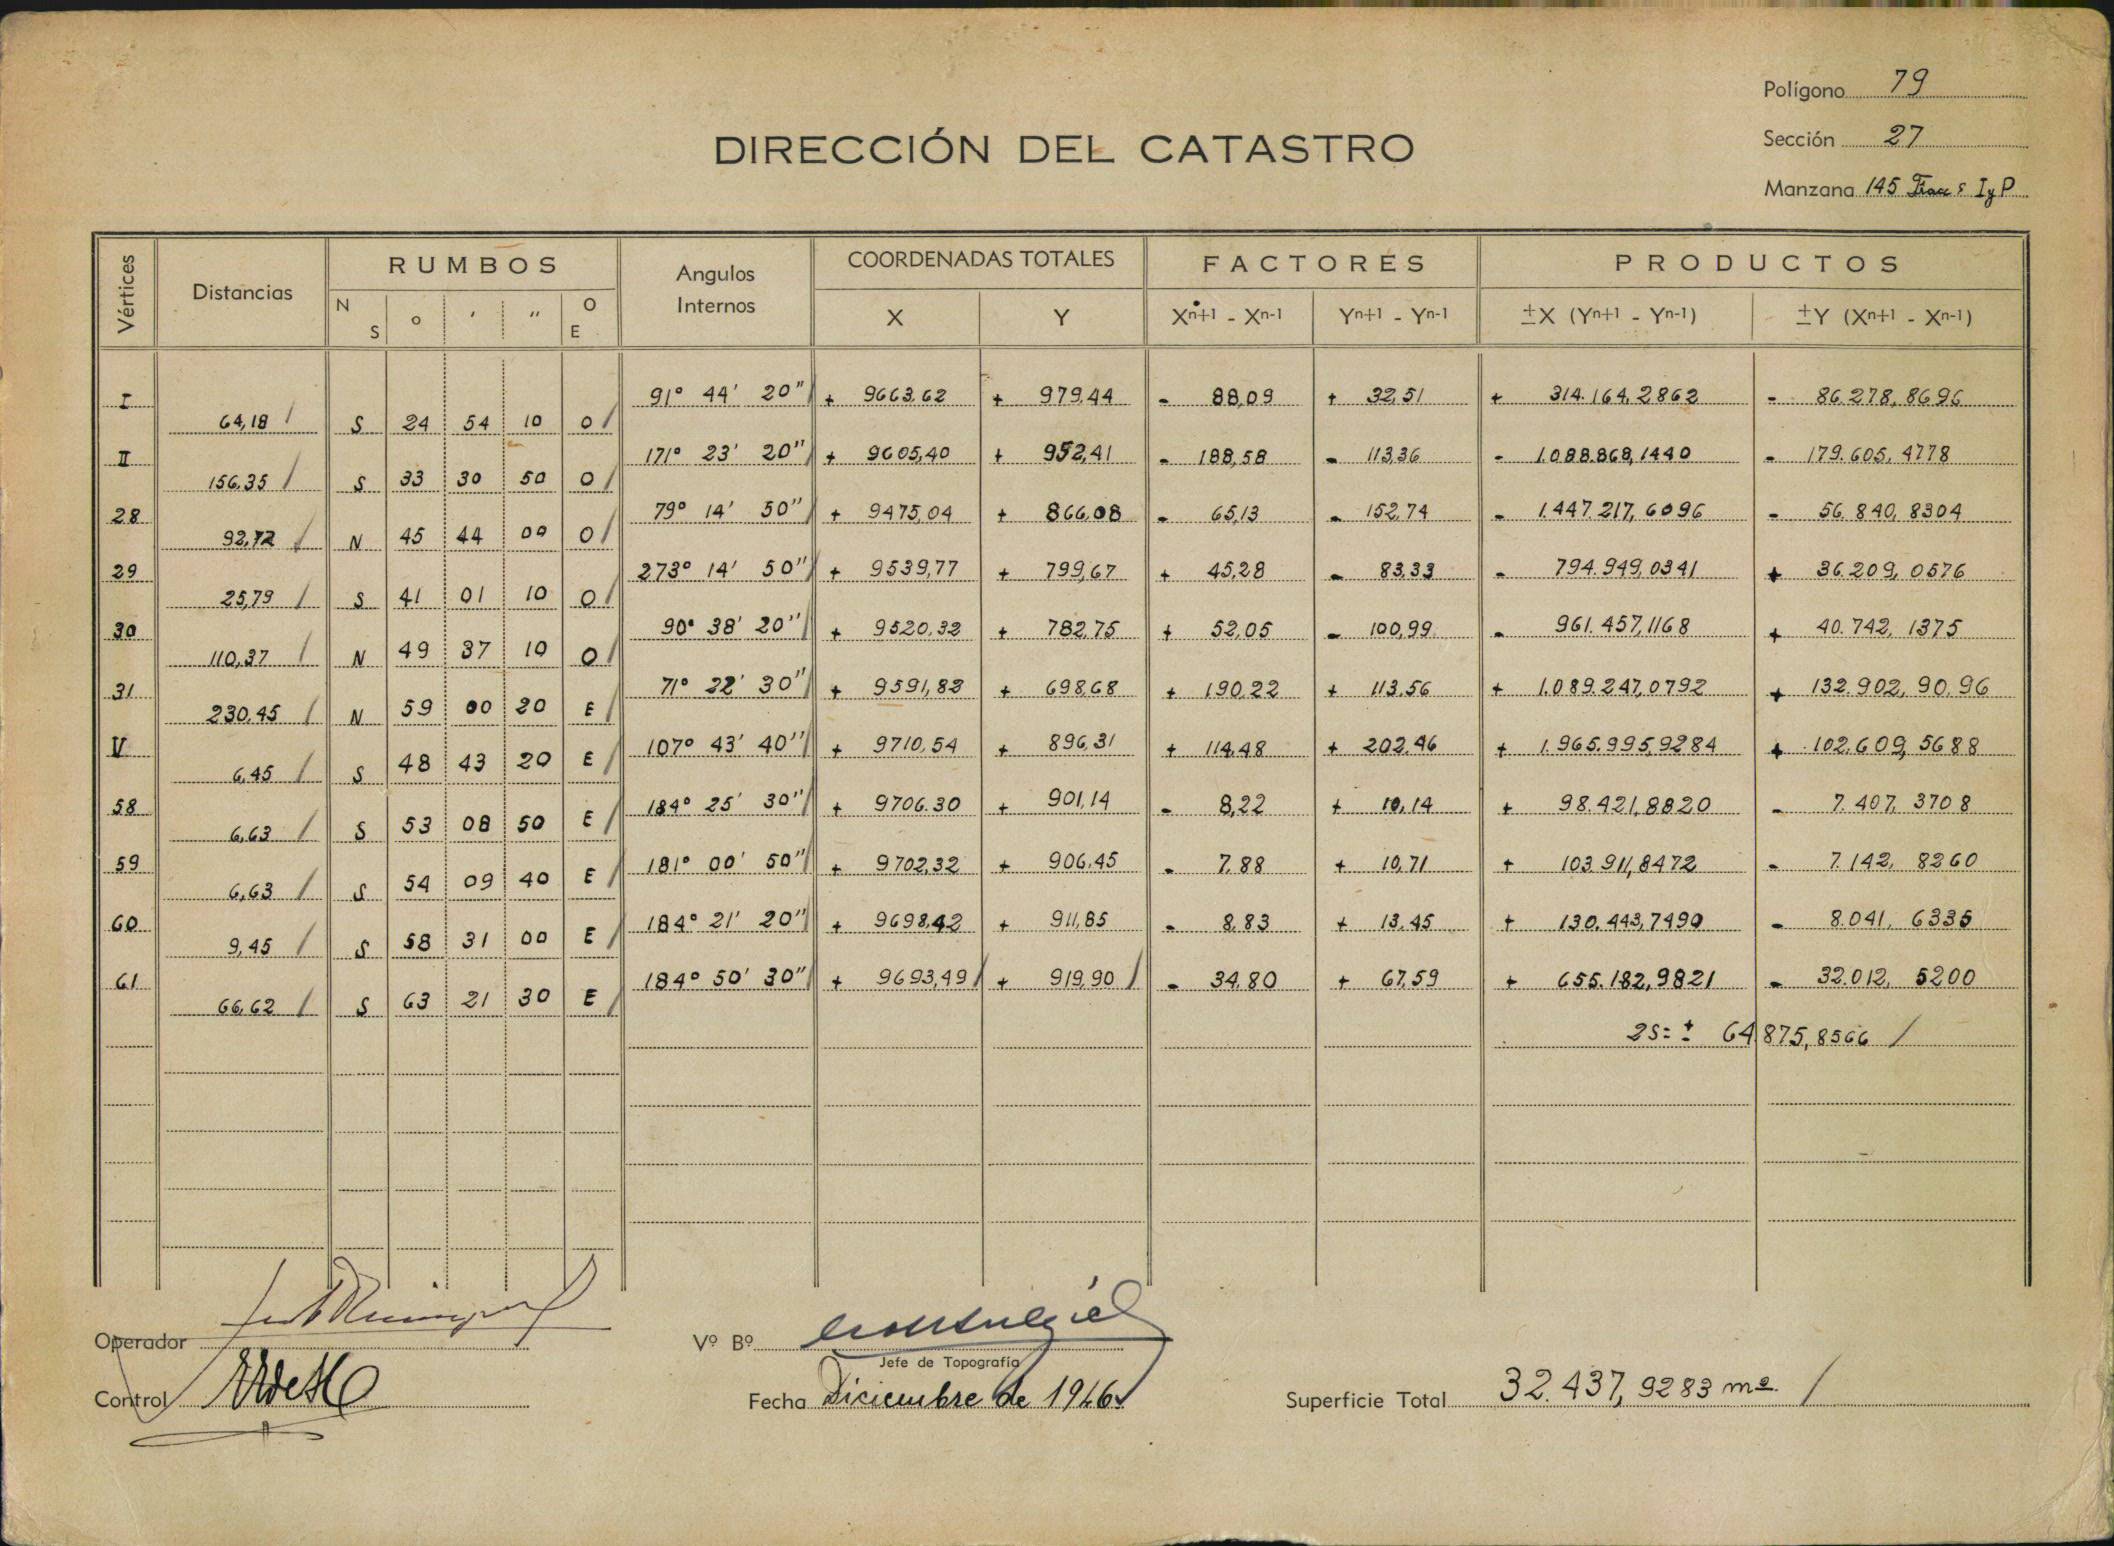 Polígono 79
DIRECCIÓN DEL CATASTRO
Sección 27
Manzana 145 Fracc s I y P
Vértices Distancias RUMBOS Angulos Internos COORDENADAS TOTALES FACTORES PRODUCTOS
N S o ′ ″ O E X Y Xn+1 - Xn-1 Yn+1 - Yn-1 ±X (Yn+1 - Yn-1) ±Y (Xn+1 - Xn-1)
I 91° 44' 20" + 9663,62 + 979,44 - 88,09 + 32,51 + 314.164,2862 - 86.278,8696
64,18 S 24 54 10 O
II 171° 23' 20" + 9605,40 + 952,41 - 188,58 - 113,36 - 1.088.868,1440 - 179.605,4778
156,35 S 33 30 50 O
28 79° 14' 50" + 9475,04 + 866,08 - 65,13 - 152,74 - 1.447.217,6096 - 56.840,8304
92,72 N 45 44 00 O
29 273° 14' 50" + 9539,77 + 799,67 + 45,28 - 83,33 - 794.949,0341 + 36.209,0576
25,79 S 41 01 10 O
30 90° 38' 20" + 9520,32 + 782,75 + 52,05 - 100,99 - 961.457,1168 + 40.742,1375
110,37 N 49 37 10 O
31 71° 22' 30" + 9591,82 + 698,68 + 190,22 + 113,56 + 1.089.247,0792 + 132.902,90,96
230,45 N 59 00 20 E
V 107° 43' 40" + 9710,54 + 896,31 + 114,48 + 202,46 + 1.965.995,9284 + 102.609,5688
6,45 S 48 43 20 E
58 184° 25' 30" + 9706.30 + 901,14 - 8,22 + 10,14 + 98.421,8820 - 7.407,3708
6,63 S 53 08 50 E
59 181° 00' 50" + 9702,32 + 906,45 - 7,88 + 10,71 + 103.911,8472 - 7.142,8260
6,63 S 54 09 40 E
60 184° 21' 20" + 9698,42 + 911,85 - 8,83 + 13,45 + 130.443,7490 - 8.041,6335
9,45 S 58 31 00 E
61 184° 50' 30" + 9693,49 + 919,90 - 34,80 + 67,59 + 655.182,9821 - 32.012,5200
66,62 S 63 21 30 E
2S = ± 64.875,8566
Operador
Vº Bº
Jefe de Topografía
Control
Fecha Diciembre de 1946
Superficie Total 32.437,9283 m²